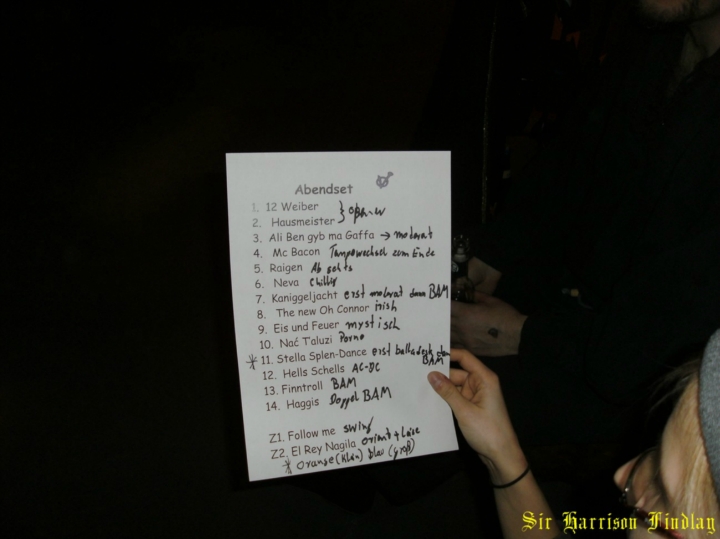 Abendset
1. 12 Weiber
2. Hausmeister } opener
3. Ali Ben gyb ma Gaffa → moderat
4. Mc Bacon Tempowechsel zum Ende
5. Raigen Ab gehts
6. Neva chillig
7. Kaniggeljacht erst moderat dann BAM
8. The new Oh Connor irish
9. Eis und Feuer mystisch
10. Nać T'aluzi Porno
* 11. Stella Splen-Dance erst balladesk dann
BAM
12. Hells Schells AC-DC
13. Finntroll BAM
14. Haggis Doppel BAM
Z1. Follow me swing
Z2. El Rey Nagila orient + Leise
* Orange (klein) blau (groß)
Sir Harrison Findlay